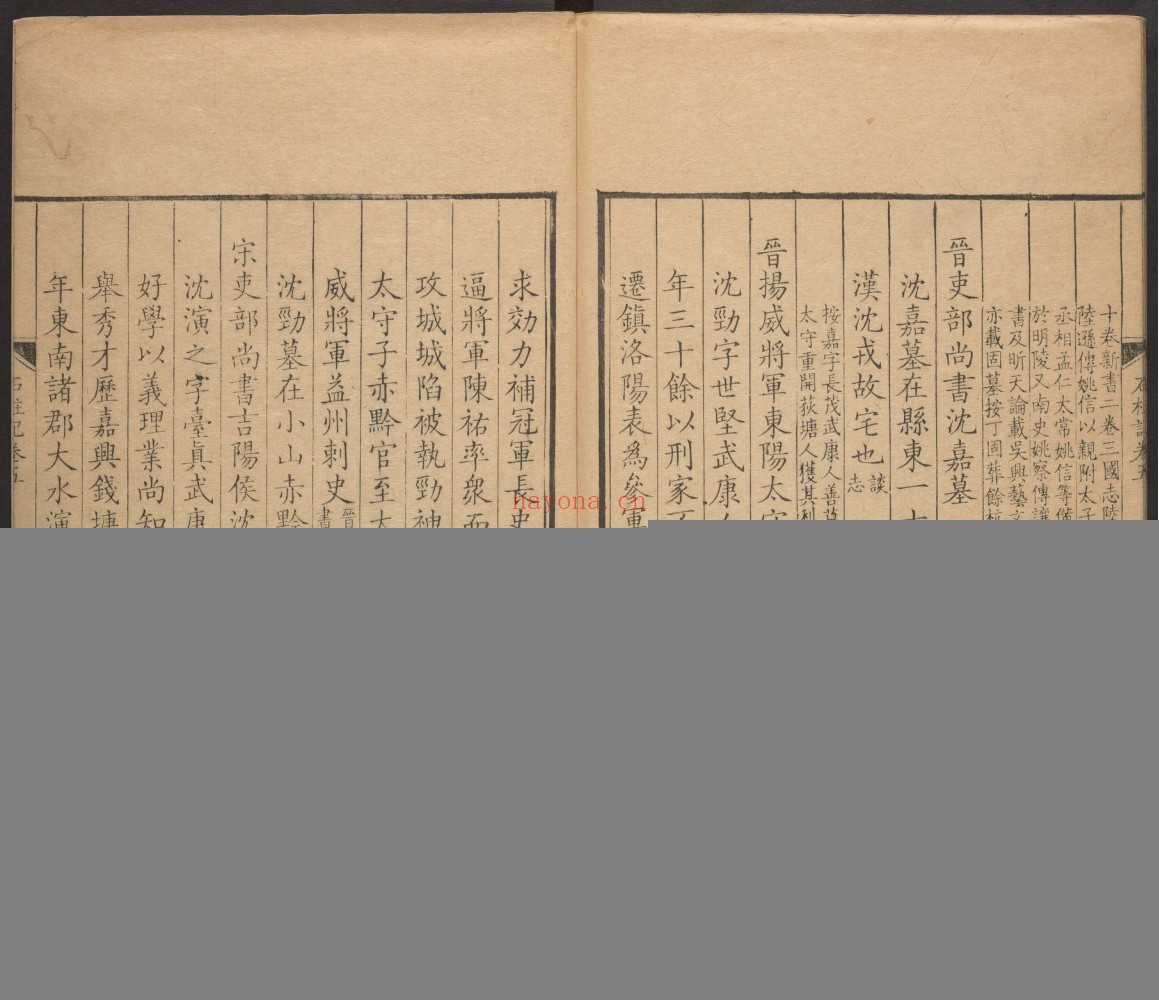 石柱記卷五
十卷新書二卷三國志陸
陸遜傳姚信以親附太子
丞相孟仁太常姚信等備
於明陵又南史姚察傳讓
書及昕天論載吳興藝文
亦載固墓按丁固葬餘杭
晉吏部尚書沈嘉墓
沈嘉墓在縣東一十
漢沈戎故宅也
談
志
按嘉字長茂武康人善草
太守重開荻塘人獲其利
晉揚威將軍東陽太守
沈勁字世堅武康人
年三十餘以刑家不
遷鎮洛陽表為參軍
求効力補冠軍長史
逼將軍陳祐率衆而
攻城城陷被執勁神
太守子赤黔官至大
威將軍益州刺史
晉
書
沈勁墓在小山赤黔
宋吏部尚書吉陽侯沈
沈演之字臺眞武康
好學以義理業尚知
舉秀才歷嘉興錢塘
年東南諸郡大水演
石柱記卷五
nayona.cn